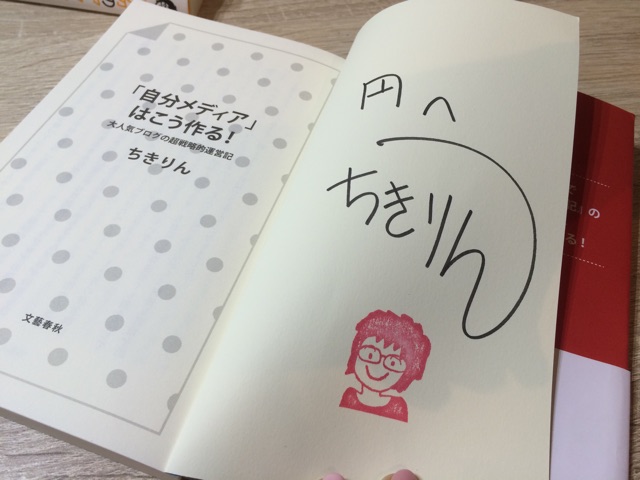 「自分メディア」
はこう作る!
大人気ブログの超戦略的運営記
ちきりん
文藝春秋
円へ
ちきりん
の
る!